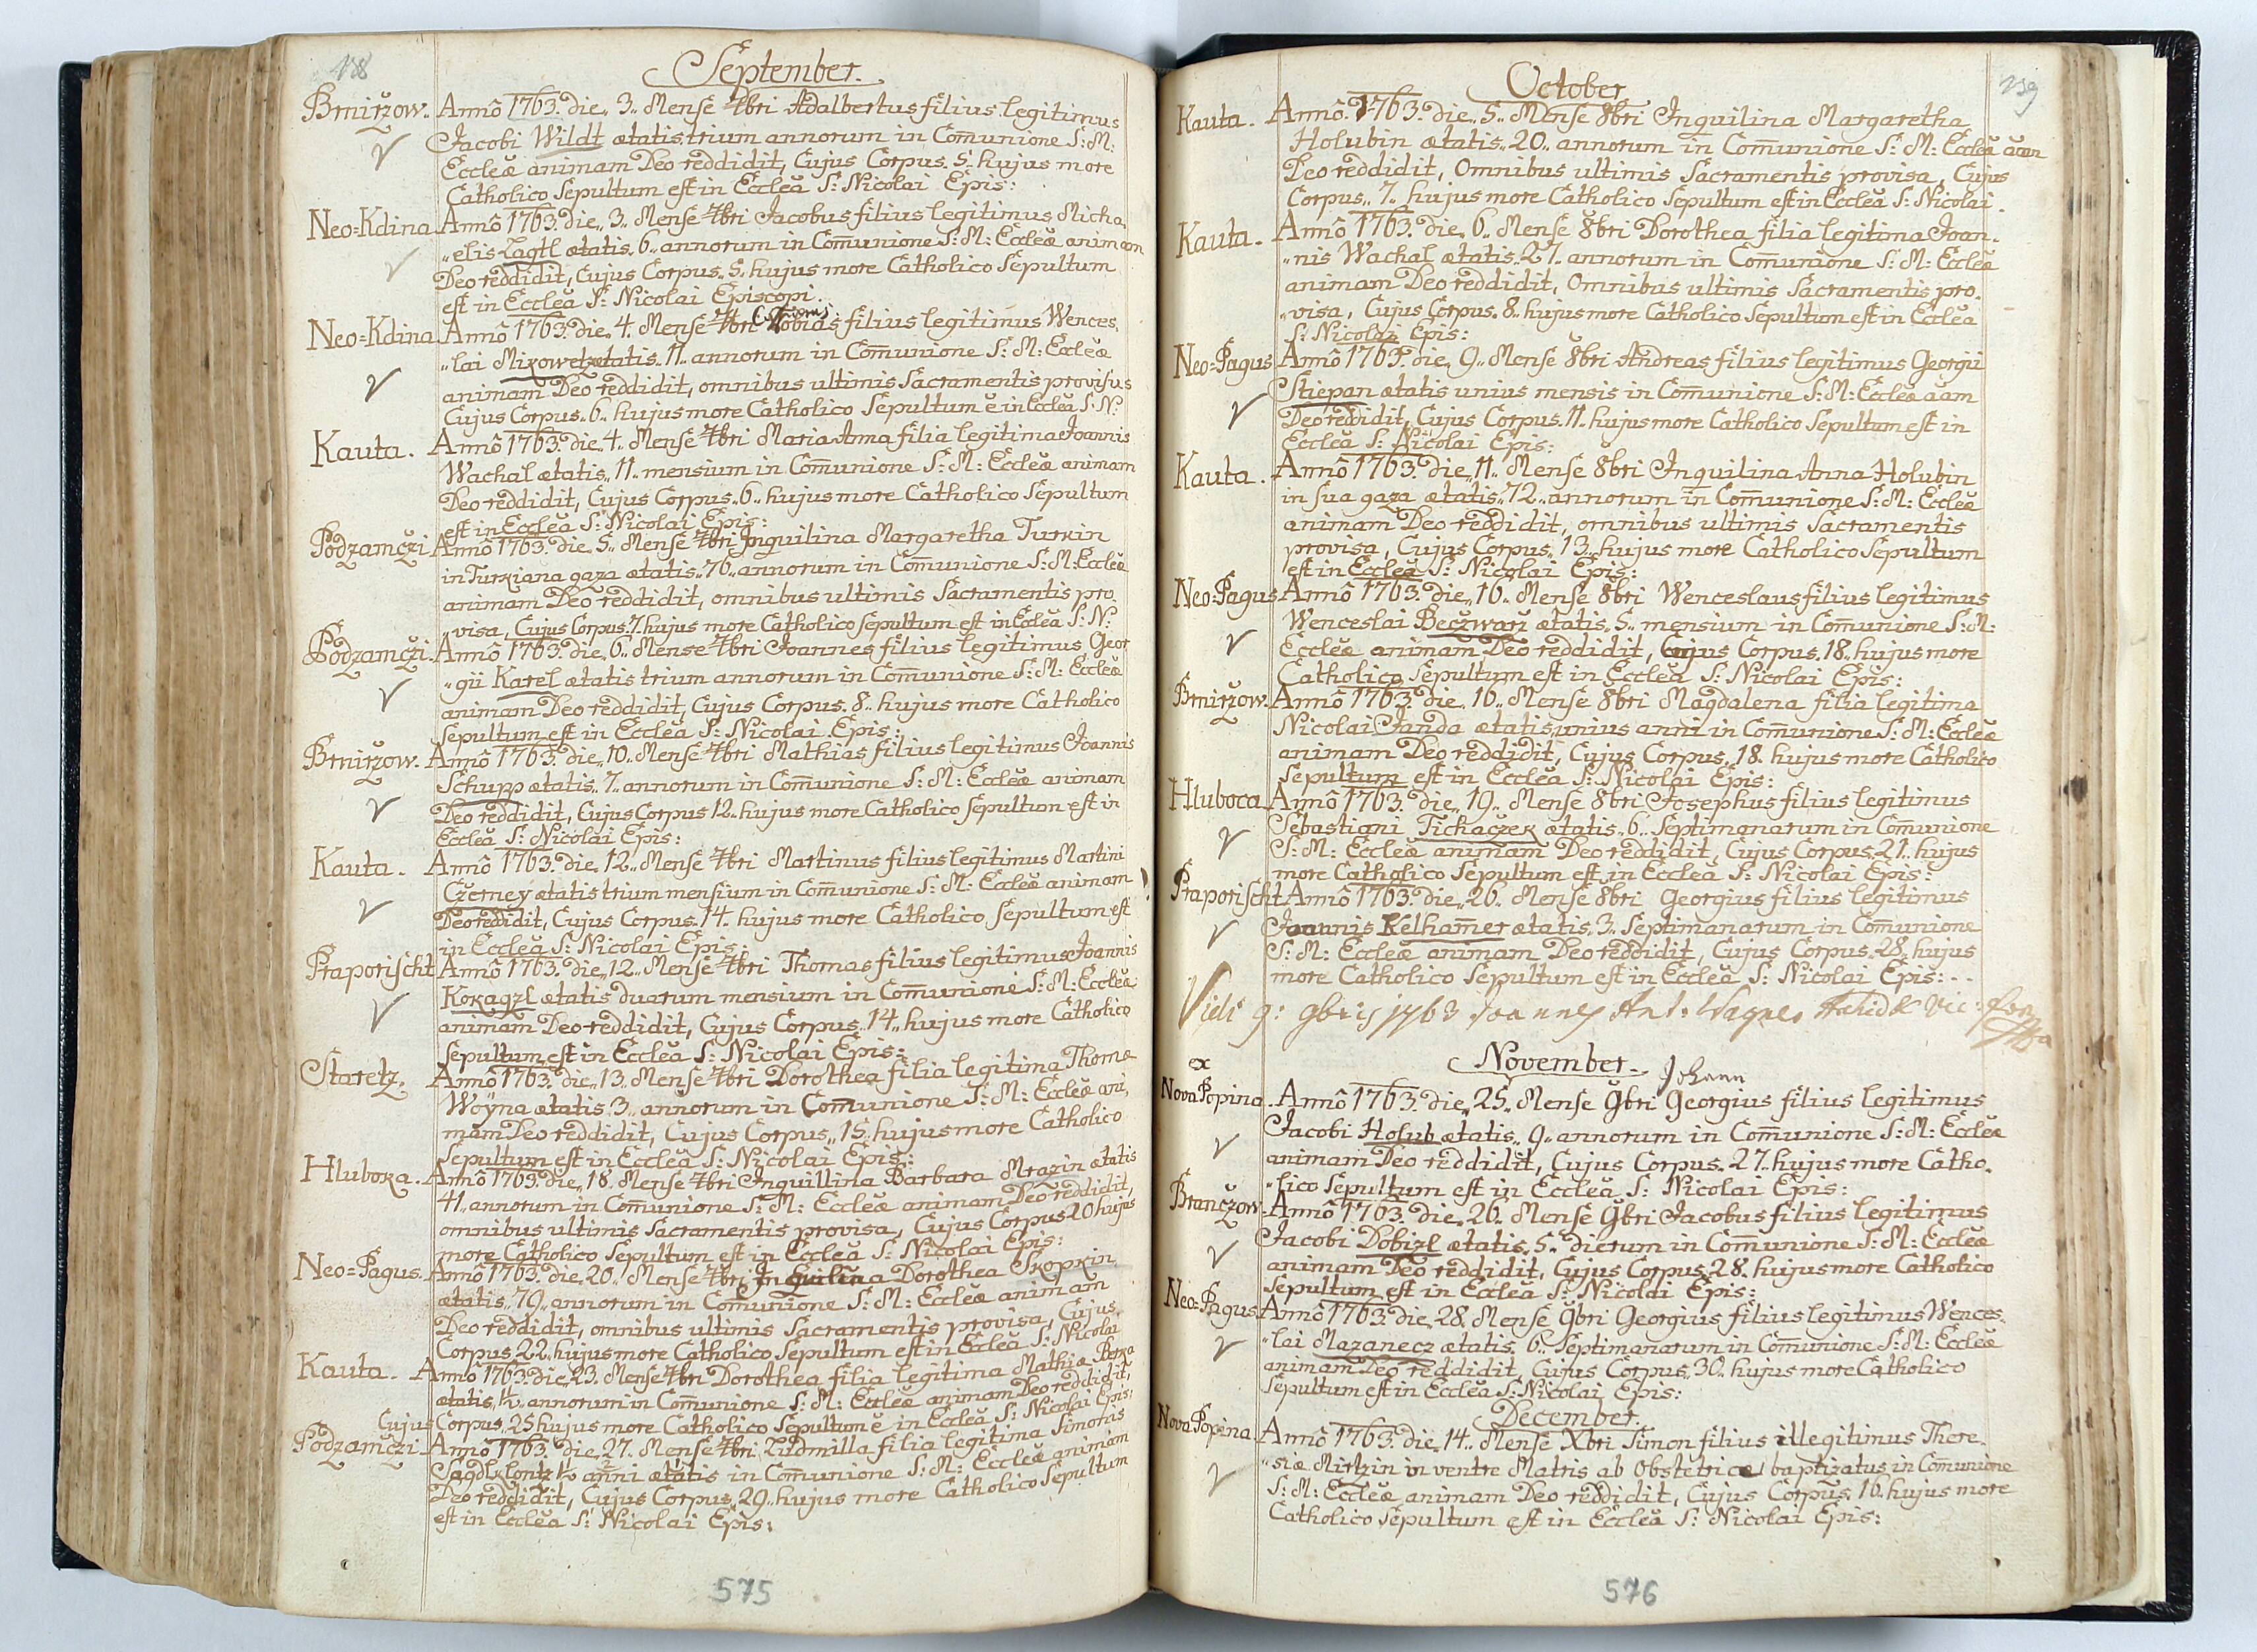 188
September.
Brnirzow. Annô 1763. die,, 3.. Mense 7bri Adalbertus filius legitimus
Jacobi Wildt ætatis trium annorum in Com̄unione S: M:
Eccleæ animam Deo reddidit, Cujus Corpus. 5.. hujus more
Catholico Sepultum est in Eccleâ S: Nicolai Epis:
Neo=Kdina Annô 1763. die,, 3.. Mense 7bri Jacobus filius legitimus Micha
„elis Lagtl ætatis. 6.. annorum in Com̄unione S: M: Eccleæ animam
Deo reddidit, Cujus Corpus. 5. hujus more Catholico Sepultum
est in Eccleâ S: Nicolai Episcopi.
Neo=Kdina Annô 1763. die,, 4. Mense 7bri Tobias filius legitimus Wences,
„lai Mixowetz ætatis. 11.. annorum in Com̄unione S: M: Eccleæ
animam Deo reddidit, omnibus ultimis Sacramentis provisus
Cujus Corpus. 6.. hujus more Catholico Sepultum ē in Eccleâ S: N:
Kauta. Annô 1763. die,, 4.. Mense 7bri Maria Anna filia legitima Joannis
Wachal ætatis,, 11.. mensium in Com̄unione S: M: Eccleæ animam
Deo reddidit, Cujus Corpus. 6.. hujus more Catholico Sepultum
est in Eccleâ S: Nicolai Epis:
Podzamczi Annô 1763. die,, 5.. Mense 7bri Inquilina Margaretha Turkin
in Turkiana gaza ætatis,, 76.. annorum in Com̄unione S: M: Eccleæ
animam Deo reddidit, omnibus ultimis Sacramentis pro
„visa, Cujus Corpus. 7. hujus more Catholico Sepultum est in Eccleâ S: N:
Podzamczi. Annô 1763. die,, 6.. Mense 7bri Joannes filius legitimus Geor
„gii Karel ætatis trium annorum in Com̄unione S: M: Eccleæ
animam Deo reddidit, Cujus Corpus. 8.. hujus more Catholico
Sepultum est in Eccleâ S: Nicolai Epis:
Brnirzow. Annô 1763. die,, 10.. Mense 7bri Mathias filius legitimus Joannis
Schupp ætatis.. 7.. annorum in Com̄unione S: M: Eccleæ animam
Deo reddidit, Cujus Corpus 12.. hujus more Catholico Sepultum est in
Eccleâ S: Nicolai Epis:
Kauta. Annô 1763. die,, 12.. Mense 7bri Martinus filius legitimus Martini
Czerney ætatis trium mensium in Com̄unione S: M: Eccleæ animam
Deo reddidit, Cujus Corpus. 14. hujus more Catholico Sepultum est
in Eccleâ S: Nicolai Epis:
Praporischt Annô 1763. die,, 12.. Mense 7bri Thomas filius legitimus Joannis
Kokagzl ætatis duarum mensium in Com̄unione S: M: Eccleæ
animam Deo reddidit, Cujus Corpus.. 14.. hujus more Catholico
Sepultum est in Eccleâ S: Nicolai Epis:
Staretz. Annô 1763. die,, 13.. Mense 7bri Dorothea filia legitima Thomæ
Woÿna ætatis. 3.. annorum in Com̄unione S: M: Eccleæ ani,
mam Deo reddidit, Cujus Corpus,, 15. hujus more Catholico
Sepultum est in Eccleâ S: Nicolai Epis:
Hluboka. Annô 1763. die,, 18. Mense 7bri Inquillina Barbara Mrazin ætatis
41.. annorum in Com̄unione S: M: Eccleæ animam Deo reddidit,
omnibus ultimis Sacramentis provisa, Cujus Corpus 20 hujus
more Catholico Sepultum est in Eccleâ S: Nicolai Epis:
Neo=Pagus. Annô 1763. die,, 20.. Mense 7bri Inquilina Dorothea Skopkin
ætatis,, 79.. annorum in Com̄unione S: M: Eccleæ animam
Deo reddidit, omnibus ultimis Sacramentis provisa, Cujus
Corpus 22. hujus more Catholico Sepultum est in Eccleâ S: Nicolai
Kauta. Annô 1763. die,, 23. Mense 7bri Dorothea filia legitima Mathiæ Berka
ætatis. ½. annorum in Com̄unione S: M: Eccleæ animam Deo reddidit,
Cujus Corpus,, 25 hujus more Catholico Sepultum ē in Eccleâ S: Nicolai Epis:
Podzamczi. Annô 1763. die,, 27. Mense 7bri Lidmilla filia legitima Simonis
½ anni ætatis in Com̄unione S: M: Eccleæ animam
Deo reddidit, Cujus Corpus,, 29.. hujus more Catholico Sepultum
est in Eccleâ S: Nicolai Epis:
575
189
October
Kauta. Annô. 1763. die,, 5.. Mense 8bri Inquilina Margaretha
Holubin ætatis.. 20.. annorum in Com̄unione S: M: Eccleæ ā̄am
Deo reddidit, Omnibus ultimis Sacramentis provisa, Cujus
Corpus,, 7.. hujus more Catholico Sepultum est in Eccleâ S: Nicolai.
Kauta. Annô 1763. die,, 6.. Mense 8bri Dorothea filia legitima Joan.
„nis Wachal ætatis.. 27.. annorum in Com̄unione S: M: Eccleæ
animam Deo reddidit, Omnibus ultimis Sacramentis pro.
„visa, Cujus Corpus. 8.. hujus more Catholico Sepultum est in Eccleâ
S: Nicolai Epis:
Neo=Pagus Annô 1763. die,, 9.. Mense 8bri Andreas filius legitimus Georgii
Stiepan ætatis unius mensis in Com̄unione S: M: Eccleæ āam
Deo reddidit, Cujus Corpus. 11. hujus more Catholico Sepultum est in
Eccleâ S: Nicolai Epis:
Kauta. Annô 1763. die,, 11.. Mense 8bri Inquilina Anna Holubin
in sua gaza ætatis,, 72.. annorum in Com̄unione S: M: Eccleæ
animam Deo reddidit, omnibus ultimis Sacramentis
provisa, Cujus Corpus,, 13.. hujus more Catholico Sepultum
est in Eccleâ S: Nicolai Epis:
Neo=Pagus Annô 1763. die,, 16.. Mense 8bri Wenceslaus filius legitimus
Wenceslai Beczwarz ætatis. 5.. mensium in Com̄unione S: M:
Eccleæ animam Deo reddidit, Cujus Corpus. 18.. hujus more
Catholico Sepultum est in Eccleâ S: Nicolai Epis:
Brnirzow. Annô 1763. die,, 16.. Mense 8bri Magdalena filia legitima
Nicolai Janda ætatis unius anni in Com̄unione S: M: Eccleæ
animam Deo reddidit, Cujus Corpus,, 18. hujus more Catholico
Sepultum est in Eccleâ S: Nicolai Epis:
Hluboca Annô 1763. die,, 19.. Mense 8bri Josephus filius legitimus
Sebastiani Tichaczek ætatis.. 6.. Septimanarum in Com̄unione
S: M: Eccleæ animam Deo reddidit, Cujus Corpus. 21.. hujus
more Catholico Sepultum est in Eccleâ S: Nicolai Epis:
Praporischt Annô 1763. die,, 26. Mense 8bri Georgius filius legitimus
Joannis Kelham̄er ætatis. 3.. Septimanarum in Com̄unione
S: M: Eccleæ animam Deo reddidit, Cujus Corpus. 28. hujus
more Catholico Sepultum est in Eccleâ S: Nicolai Epis: - -
Vidi 9: 9bris 1763 Joannes Ant: Wagner
November.
Johann
ex
Nova Popina. Annô 1763. die,, 25.. Mense 9bri Georgius filius legitimus
Jacobi Holub ætatis.. 9.. annorum in Com̄unione S: M: Eccleæ
animam Deo reddidit, Cujus Corpus. 27. hujus more Catho.
„lico Sepultum est in Eccleâ S: Nicolai Epis:
Branczow. Annô 1763. die,, 26.. Mense 9bri Jacobus filius legitimus
Jacobi Dobizl ætatis. 5.. dierum in Com̄unione S: M: Eccleæ
animam Deo reddidit, Cujus Corpus. 28. hujus more Catholico
Sepultum est in Eccleâ S: Nicolai Epis:
Neo=Pagus Annô 1763. die,, 28. Mense 9bri Georgius filius legitimus Wences.
„lai Mazanecz ætatis. 6.. Septimanarum in Com̄unione S: M: Eccleæ
animam Deo reddidit, Cujus Corpus. 30.. hujus more Catholico
Sepultum est in Eccleâ S: Nicolai Epis:
December.
Nova Popina. Annô 1763. die,, 14.. Mense Xbri Simon filius illegitimus There.
„siæ Mirtzin in ventre Matris ab Obstetrice baptizatus in Com̄unione
S: M: Eccleæ animam Deo reddidit, Cujus Corpus. 16. hujus more
Catholico Sepultum est in Eccleâ S: Nicolai Epis:
576